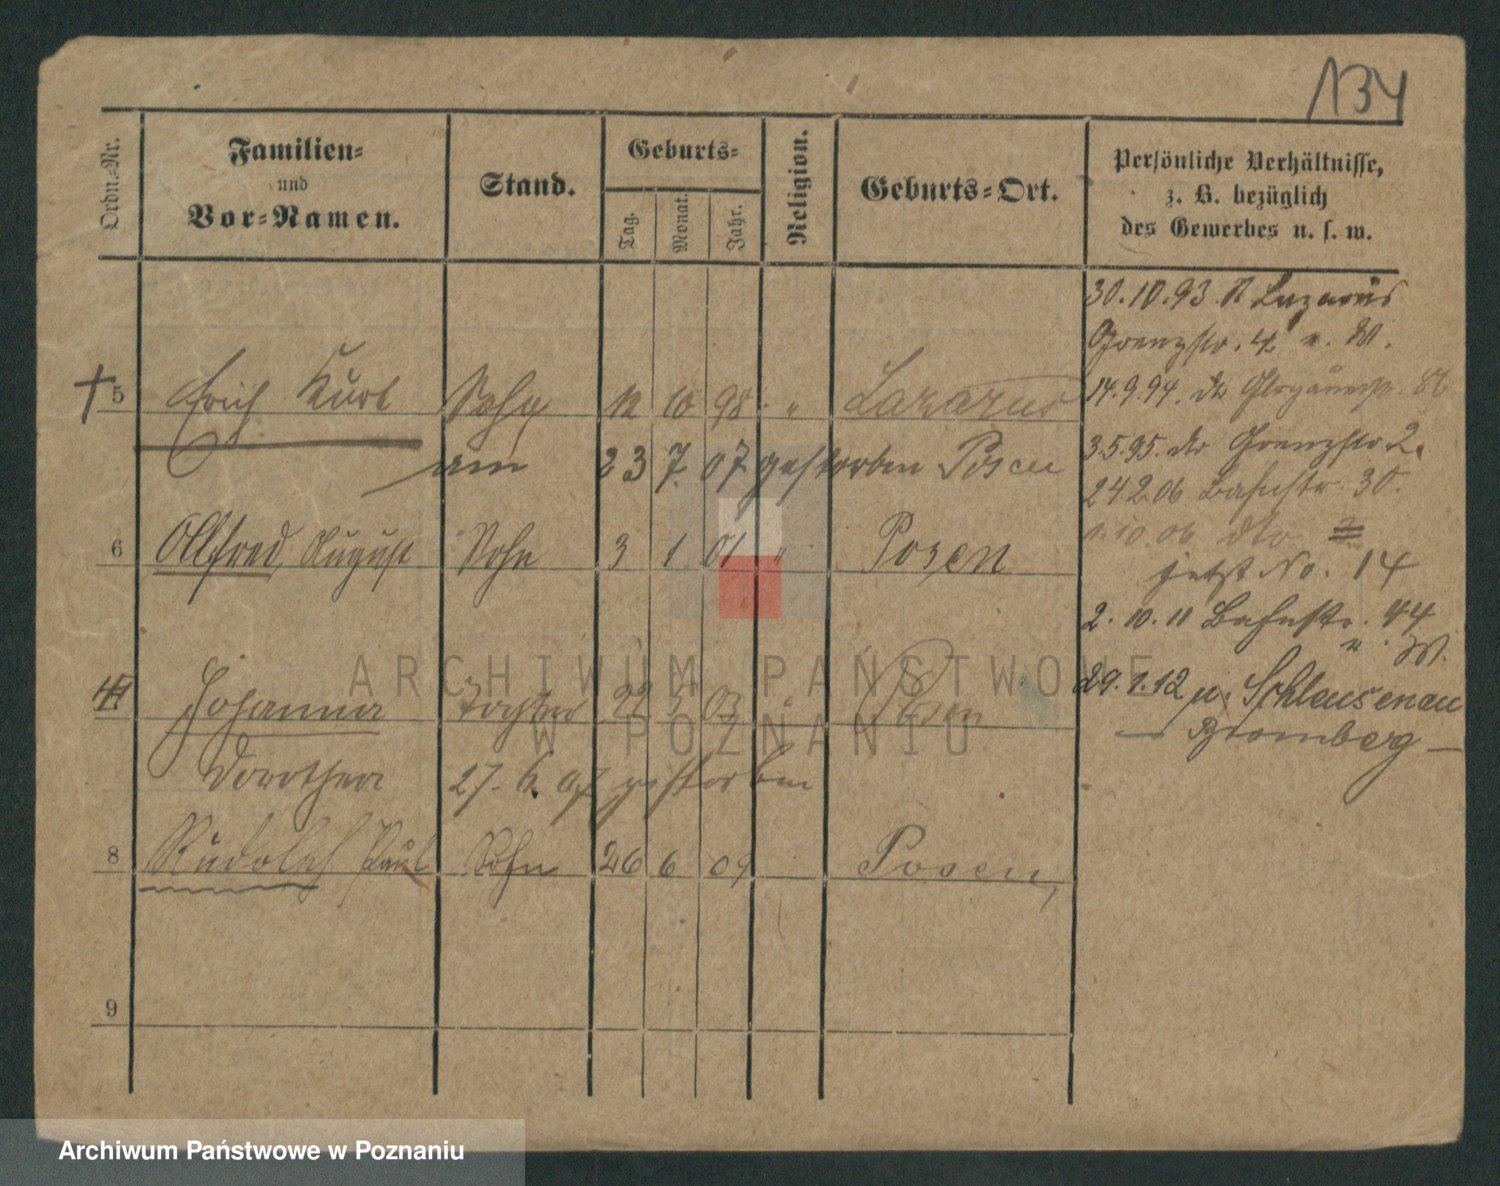 134
Ordn.-Nr.
Familien-
und
Vor-Namen.
Stand.
Geburts-
Tag.
Monat.
Jahr.
Religion.
Geburts-Ort.
Persönliche Verhältnisse,
z. B. bezüglich
des Gewerbes u. s. w.
30.10.93. St Lazarus
Grenzstr. 4 u. W.
14.9.94. dto
3.5.95. dto Grenzstr 2.
24 2 06 Bahnstr. 30.
1.10.06 dto
jetzt No. 14
2. 10. 11 Bahnstr. 44
u. W.
29.1.12 n. Schleusenau
— Bromberg —
† 5 Erich Kurt Sohn 12 10 98 " Lazarus
am 23 7. 07 gestorben Posen
6 Alfred August Sohn 3 1 01 " Posen
Johanna Tochter 22 03 " Posen
Dorothea 27. 6. 07 gestorben
8 Rudolph Paul Sohn 26 6 04 Posen,
9
ARCHIWUM PAŃSTWOWE
W POZNANIU
Archiwum Państwowe w Poznaniu